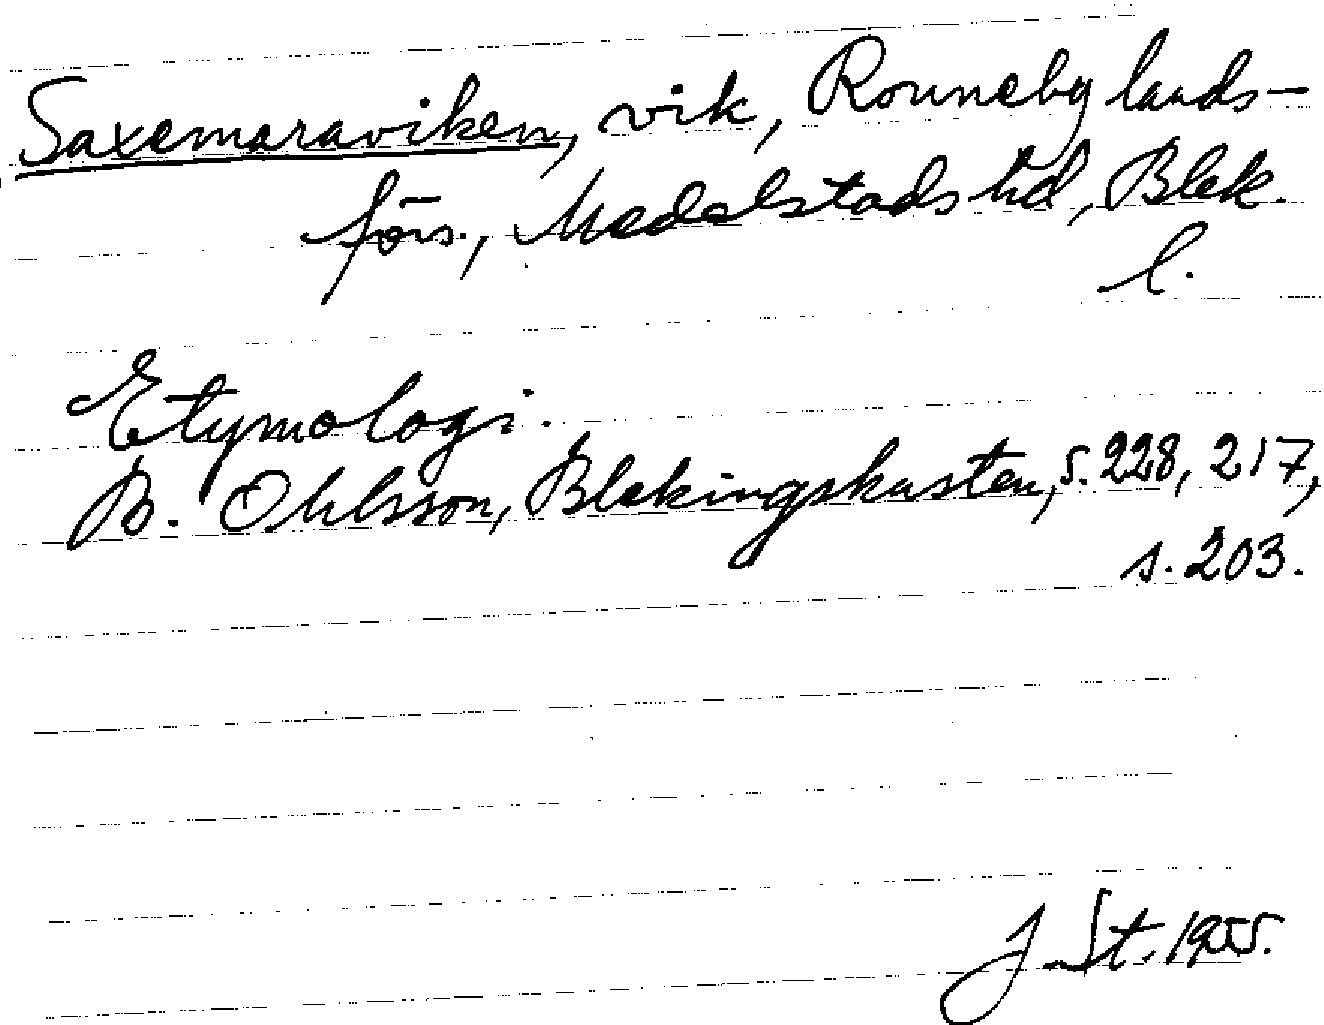 Saxemaraviken, vik, Ronneby lands-
förs., Medelstads hd, Blek.
l.
Etymologi.
B. Ohlsson, Blekingskusten, s. 228, 217,
s. 203.
J. St. 1955.